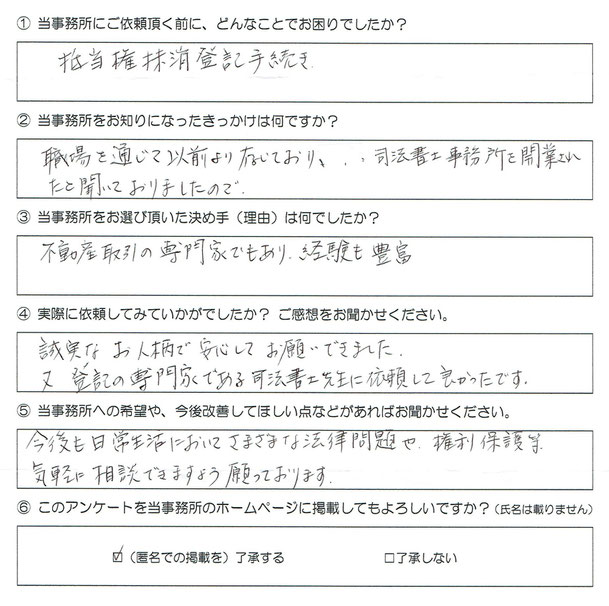 ① 当事務所にご依頼頂く前に、どんなことでお困りでしたか？
抵当権抹消登記手続き.
② 当事務所をお知りになったきっかけは何ですか？
職場を通じて以前より存じており、..司法書士事務所を開業され
たと聞いておりましたので.
③ 当事務所をお選び頂いた決め手（理由）は何でしたか？
不動産取引の専門家でもあり.経験も豊富
④ 実際に依頼してみていかがでしたか？ ご感想をお聞かせください。
誠実なお人柄で安心してお願いできました.
又 登記の専門家である司法書士先生に依頼して良かったです.
⑤ 当事務所への希望や、今後改善してほしい点などがあればお聞かせください。
今後も日常生活においてさまざまな法律問題や.権利保護等
気軽に相談できますよう願っております.
⑥ このアンケートを当事務所のホームページに掲載してもよろしいですか？(氏名は載りません)
☑（匿名での掲載を）了承する □了承しない